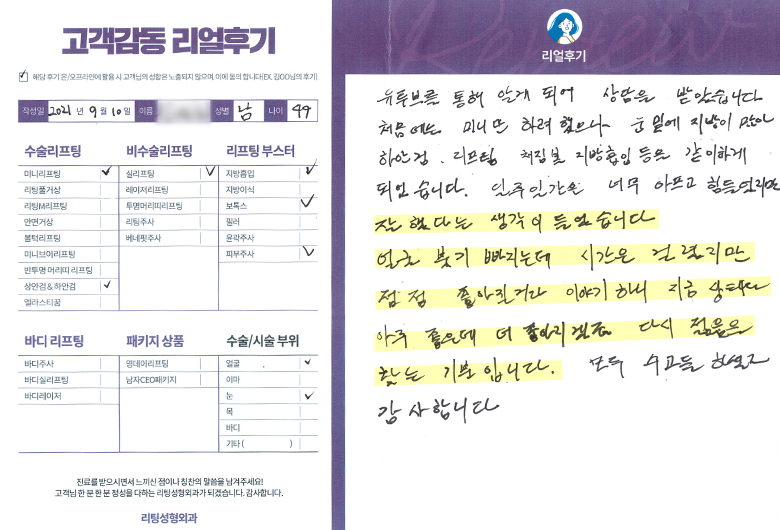 고객감동 리얼후기
해당 후기 온/오프라인에 활용 시 고객님의 성함은 노출되지 않으며, 이에 동의 합니다(EX. 김OO님의 후기)
작성일 2021 년 9 월 10 일 이름 성별 남 나이 44
수술리프팅
미니리프팅
리팅풀거상
리팅M리프팅
안면거상
볼턱리프팅
미니브이리프팅
반투명 머리띠 리프팅
상안검 & 하안검
엘라스티꿈
비수술리프팅
실리프팅
레이저리프팅
투명머리띠리프팅
리팅주사
베네핏주사
리프팅 부스터
지방흡입
지방이식
보톡스
필러
윤곽주사
피부주사
바디 리프팅
바디주사
바디실리프팅
바디레이저
패키지 상품
영데이리프팅
남자CEO패키지
수술/시술 부위
얼굴
이마
눈
목
바디
기타 ( )
진료를 받으시면서 느끼신 점이나 칭찬의 말씀을 남겨주세요!
고객님 한 분 한 분 정성을 다하는 리팅성형외과가 되겠습니다. 감사합니다.
리팅성형외과
Review
리얼후기
유투브를 통해 알게 되어 상담을 받았습니다
처음에는 미니만 하려 했으나 눈 밑에 지방이 많아
하안검. 리프팅 처짐볼 지방흡입 등을 같이하게
되었습니다. 일주일간은 너무 아프고 힘들었지만
잘했다는 생각이 들었습니다
얼굴 붓기 빠지는데 시간은 걸렸지만
점점 좋아진거라 이야기하니 지금 상태라
아주 좋은데 더 좋아지겠죠 다시 젊음을
찾는 기분입니다. 모두 수고들 하셨고
감사합니다